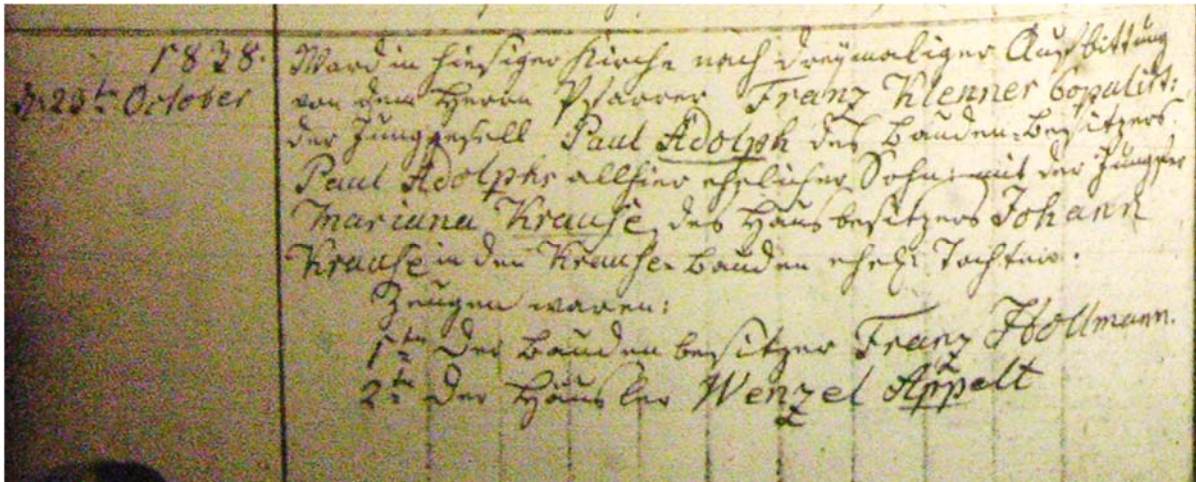 1838.
d. 23ten October
Ward in hiesiger Kirche nach dreymaliger Aufbittung
von dem Herrn Pfarrer Franz Klenner copulirt:
der Junggesell Paul Adolph des Bauden-Besitzers
Paul Adolphs allhier ehelicher Sohn: mit der Jungfer
Mariana Krause, des Hausbesitzers Johann
Krause in den Krause-Bauden ehel: Tochter.
Zeugen waren:
1ten Der Baudenbesitzer Franz Hollmann.
2ten Der Häusler Wenzel Appelt